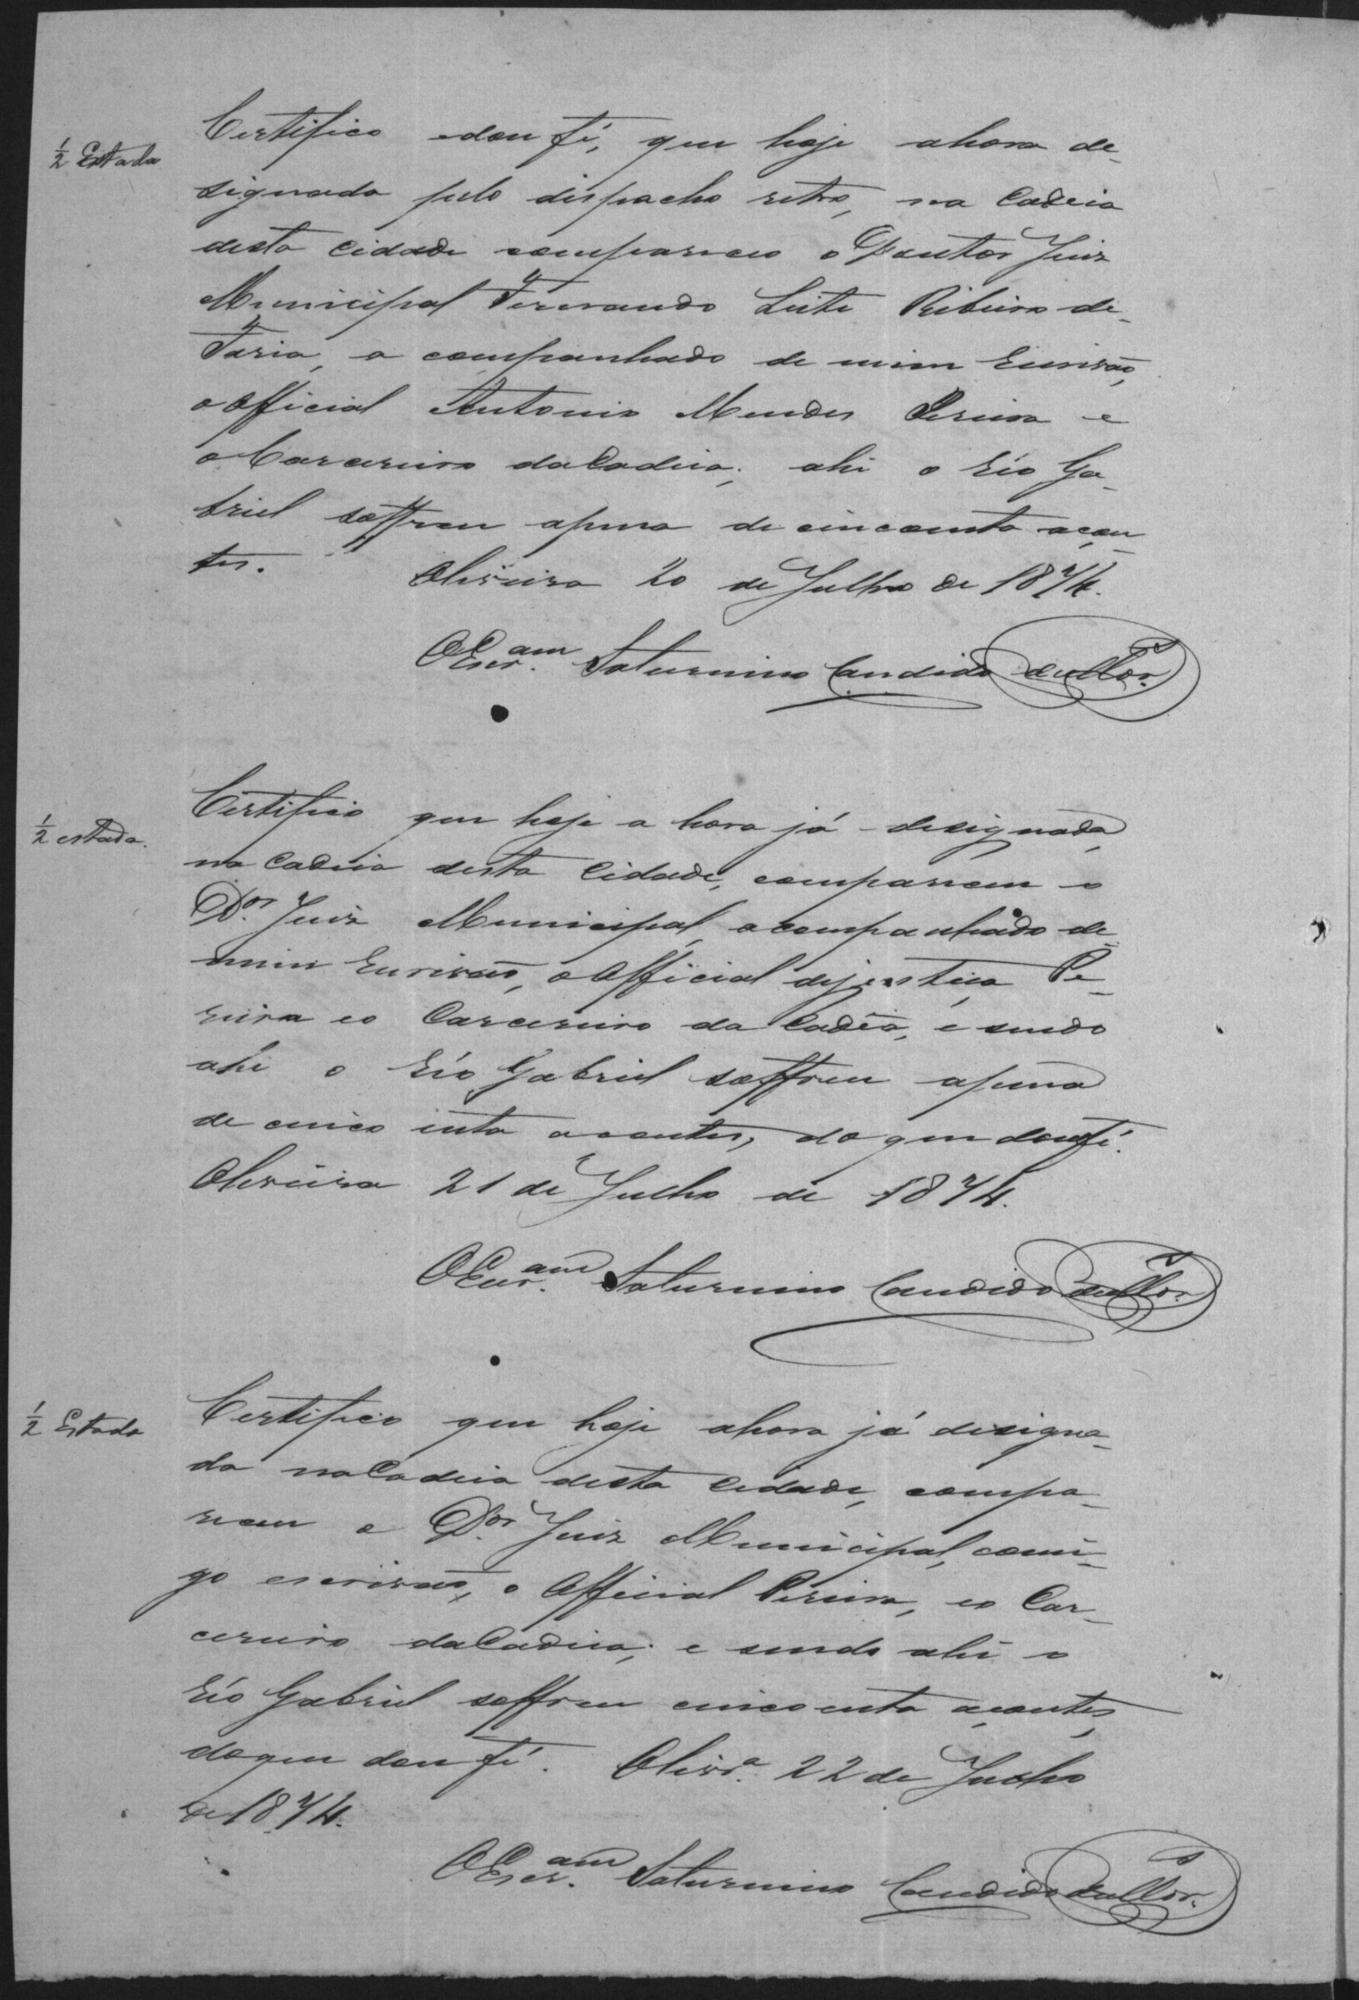 ½ Estada
Certifico e dou fé, que hoje a hora de-
signada pelo dispacho retro, na Cadeia
desta Cidade compareceo o Doutor Juiz
Municipal Fernando Leite Ribeiro de
Faria, a companhado de mim Escrivão,
o Official Antonio Mendes Pereira e
o Carcereiro da Cadeia; ahi o réo Ga-
briel soffreu a pena de cincoenta açou-
tes. Oliveira 20 de Julho de 1874.
O Escr.am Saturnino Candido
½ estada.
Certifico que hoje a hora já designada,
na Cadeia desta Cidade, compareceu o
D.or Juiz Municipal, acompanhado de
mim Escrivão, o Official de justiça Pe-
reira e o Carcereiro da Cadêa, e sendo
ahi o réo Gabriel soffreu a pena
de cinco enta açoutes, do que dou fé.
Oliveira 21 de Julho de 1874.
O Escr.am Saturnino Candido
½ Estada
Certifico que hoje a hora já designa-
da na Cadeia desta Cidade, compa-
receu o D.or Juiz Municipal, comi-
go escrivão, o Official Pereira, e o Car-
cereiro da Cadeia; e sendo ahi o
réo Gabriel soffreu cincoenta açoutes,
do que dou fé. Olivr.a 22 de Julho
de 1874.
O Escr.am Saturnino Candido